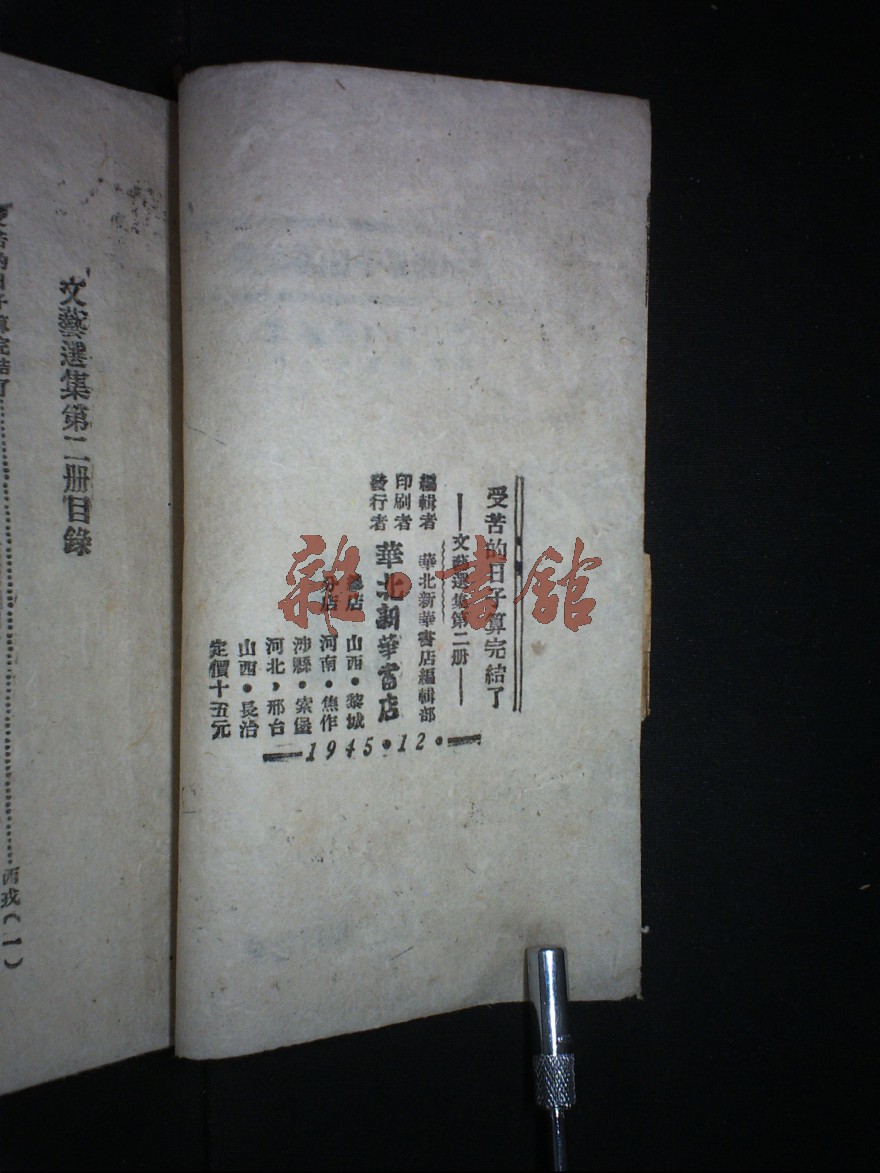 受苦的日子算完結了
——文藝選集第二册——
編輯者 華北新華書店編輯部
印刷者
發行者 華北新華書店
總店 山西•黎城
分店 河南•焦作
涉縣•索堡
河北,邢台
山西•長治
定價十五元
1945•12•
文藝選集第二册目錄
受苦的日子算完結了……西戎(一)
雜·書館